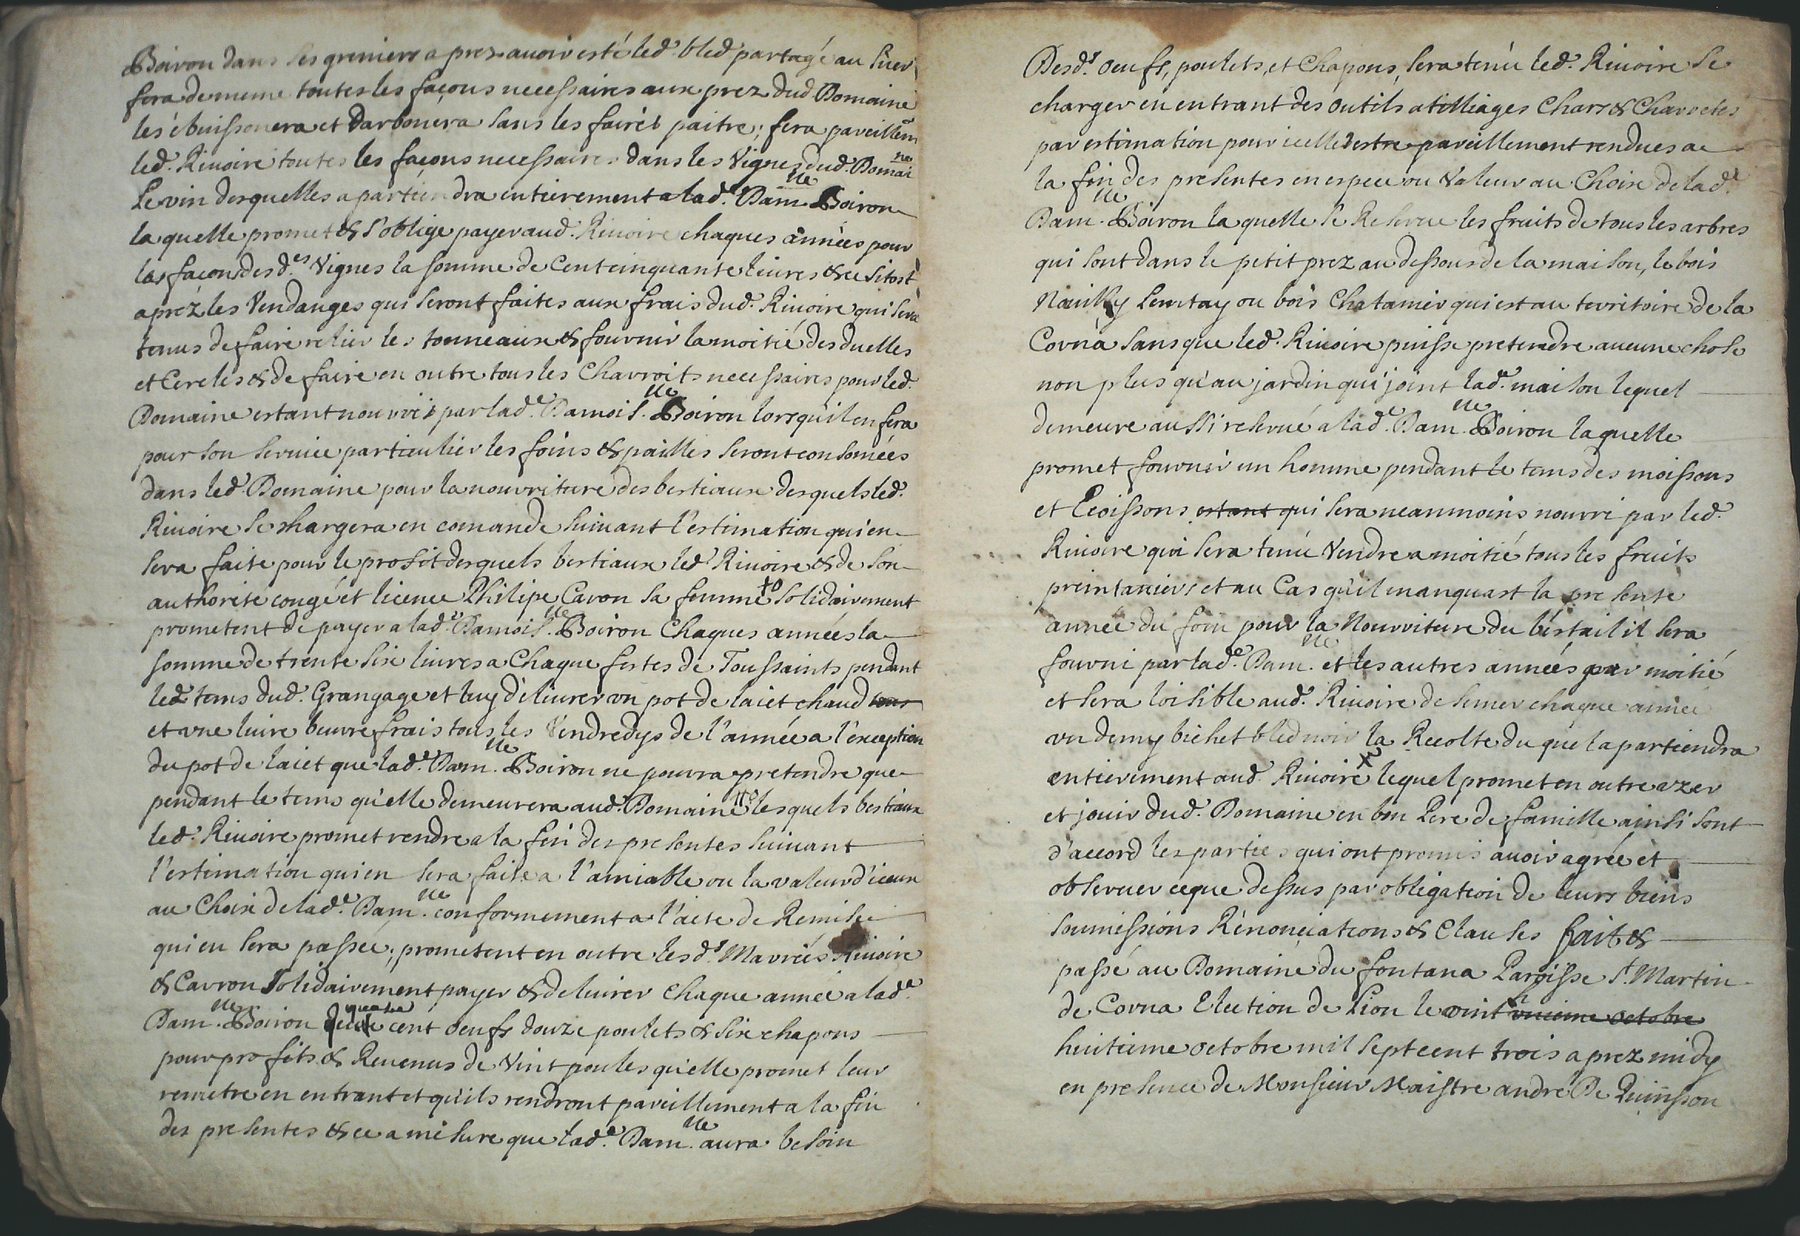 Boiron dans ses greniers aprez avoir esté led. bled partagé au suer
fera de meme toutes les façons necessaires aux prez dud Domaine
les ébuissonera et Darbonera sans les faire paitre; fera pareillem
led. Rivoire toutes les façons necessaires dans les Vignes dud. Domai ne
Le vin desquelles apartiendra entierement a lad.e Dam.lle Boiron
la quelle promet & s'oblige payer aud. Rivoire chaques années pour
las façon desd.es Vignes la somme de Cent cinquante livres & ce sitost
aprez les Vendanges qui seront faites aux frais dud. Rivoire qui sera
tenus de faire relier les tonneaux & fournir la moitié des duelles
et Cercles & de faire en outre tous les Charroits necessaires pour led.
Domaine estant nourri par lad.e Damois.lle Boiron lorsqu'il en fera
pour son service particulier les foins & pailles seront consomées
dans led. Domaine pour la nourriture des bestiaux desquels led.
Rivoire se chargera en comande suivant l'estimation qui en
sera faite pour le profit desquels bestiaux led. Rivoire & de son
authorité congé et licence Philipe Caron sa femme solidairement
prometent de payer a lad.e Damois.lle Boiron Chaques années la
somme de trente six livres a Chaque festes de Toussaints pendant
led. tems dud. Grangage et luy délivrer un pot de laict chaud tous
et une livre beurre frais tous les Vendredys de l'année a l'exception
du pot de laict que lad.e Dam.lle Boiron ne pourra pretendre que
pendant le tems qu'elle demeurera aud. Domaine lesquels bestiaux
led. Rivoire promet rendre a la fin des presentes suivant
l'estimation qui en sera faite a l'amiable ou la valeur d'iceux
au Choix de lad.e Dam.lle conformement a l'acte de Remise
qui en sera passée; prometent en outre lesd.s Mariés Rivoire
& Carron solidairement payer & delivrer chaque année a lad.e
Dam.lle Boiron quatre cent oeufs douze poulets & six chapons
pour profits & Revenus de Vint poules qu'elle promet leur
remetre en entrant et qu'ils rendront pareillement a la fin
des presentes & ce a mesure que lad.e Dam.lle aura besoin
Desd.s oeufs, poulets, et Chapons, sera tenu led. Rivoire se
charger en entrant des outils atilliages Chars & Charretes
par estimation pour icelle estre pareillement rendues a
la fin des presentes en espece ou Valeur au Choix de lad.e
Dam.lle Boiron la quelle se Reserve les fruits de tous les arbres
qui sont dans le petit prez au dessous de la maison, le bois
ou bois Chatanier qui est au territoire de la
Corna sans que led. Rivoire puisse pretendre aucune chose
non plus qu'au jardin qui joint lad.e maison lequel
demeure aussi reservé a lad.e Dam.lle Boiron laquelle
promet fournir un homme pendant le tems des moissons
et Ecoissons estant qui sera neanmoins nourri par led.
Rivoire qui sera tenu Vendre a moitié tous les fruits
preintaniers et au Cas qu'il manquast la presente
année du foin pour la Nourriture du bestail il sera
fourni par lad.e Dam.lle et les autres années par moitié
et sera loisible aud. Rivoire de semer chaque année
un demy bichet bled noir la Recolte du quel apartiendra
entierement aud. Rivoire lequel promet en outre uzer
et jouir dud. Domaine en bon Pere de famille ainsi sont
d'accord les parties qui ont promis avoir agrée et
observer ce que dessus par obligation de leurs biens
soumissions Rénonciations & Clauses fait &
passé au Domaine du fontana Paroisse S.t Martin
de Corna Election de Lion le vint octobre
huitieme octobre mil sept cent trois aprez midy
en presence de Monsieur Maistre andré De Quinsson